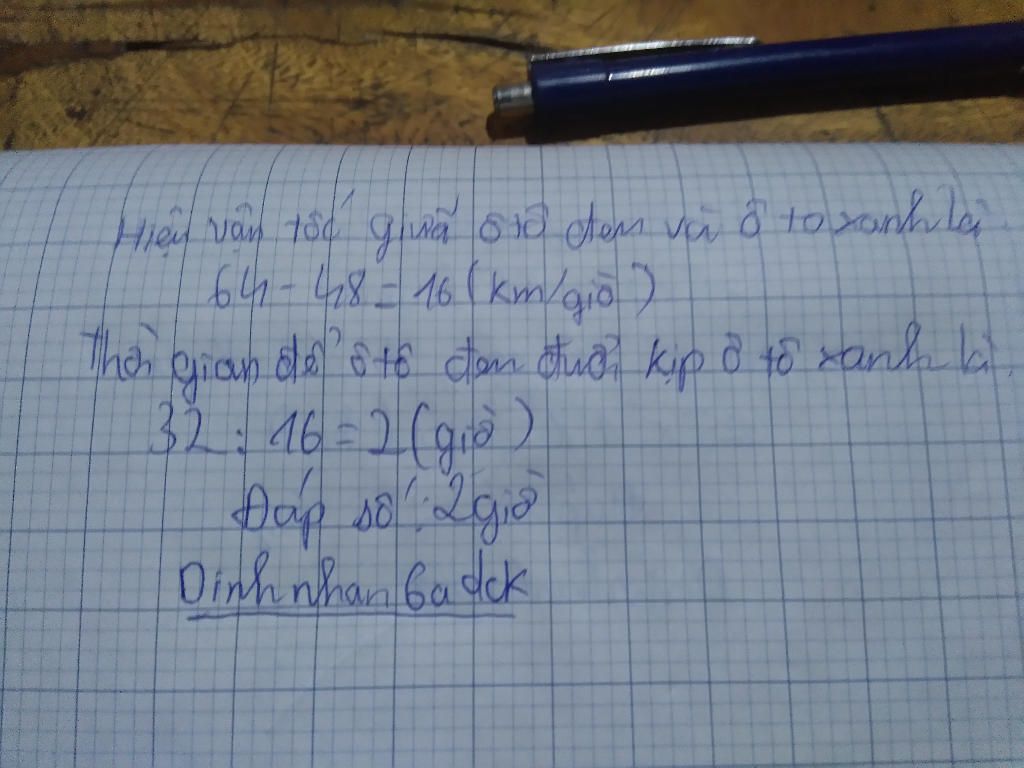 Hiệu vận tốc giữa ô tô đen và ô tô xanh là
64 - 48 = 16 (km/giờ)
Thời gian để ô tô đen đuổi kịp ô tô xanh là
32 : 16 = 2 (giờ)
Đáp số : 2 giờ
Dinh nhan 6a dck